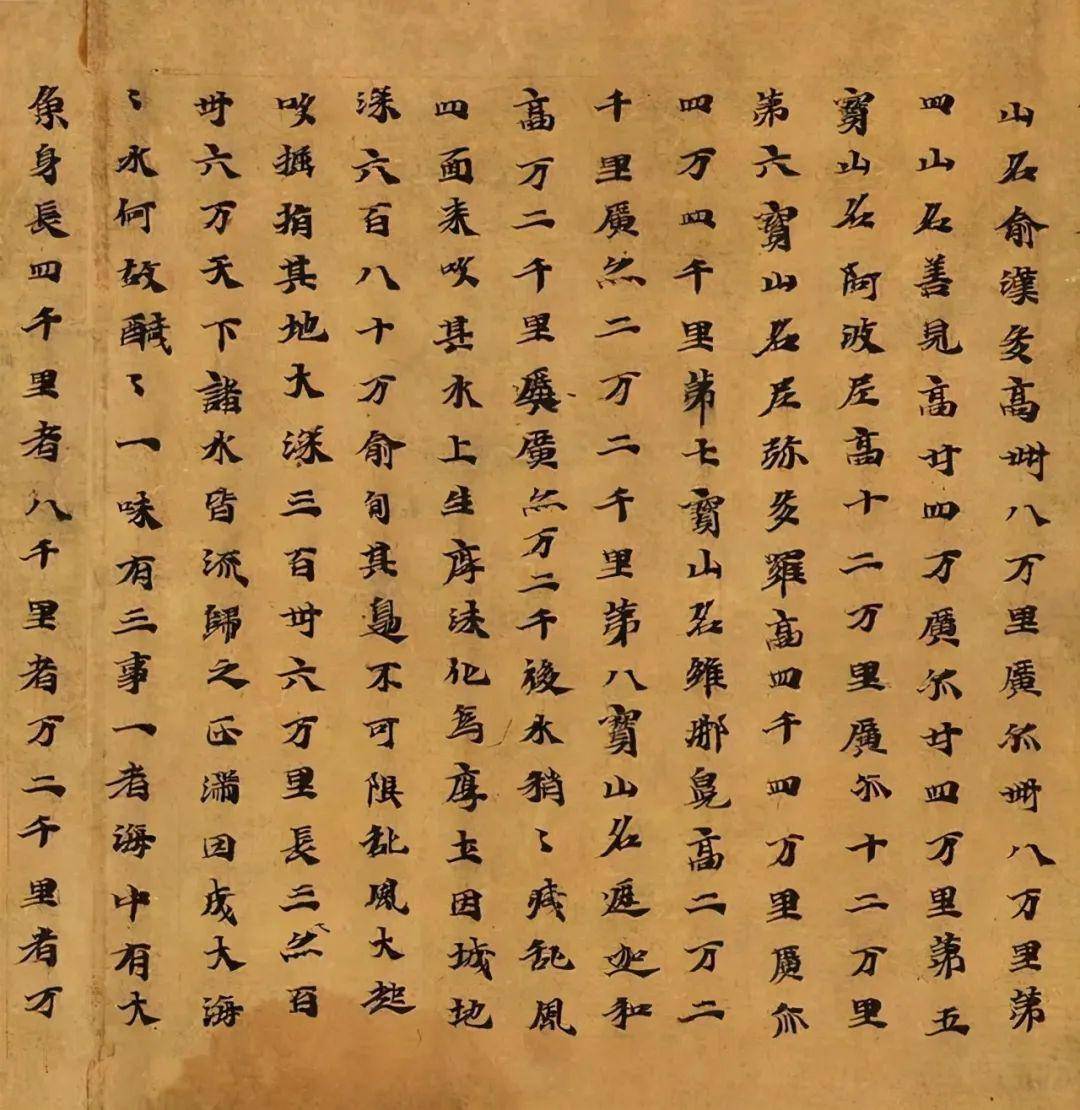 山名俞漢多高卌八万里廣尒卌八万里第
四山名善見高廿四万廣尒廿四万里第五
寳山名阿波尼高十二万里廣尒十二万里
第六寳山名尼弥多羅高四千四万里廣尒
四万四千里第七寳山名維那兜高二万二
千里廣尒二万二千里第八寳山名遮迦和
高万二千里廣尒万二千後水稍〻減乱風
四面来吹其水上生厚沫化為厚土因城地
深六百八十万俞旬其邊不可限乱風大起
吹掘捐其地大深三百卅六万里長三百
卅六万天下諸水皆流歸之正滿因成大海
〻水何故醎〻一味有三事一者海中有大
魚身長四千里者八千里者万二千里者万